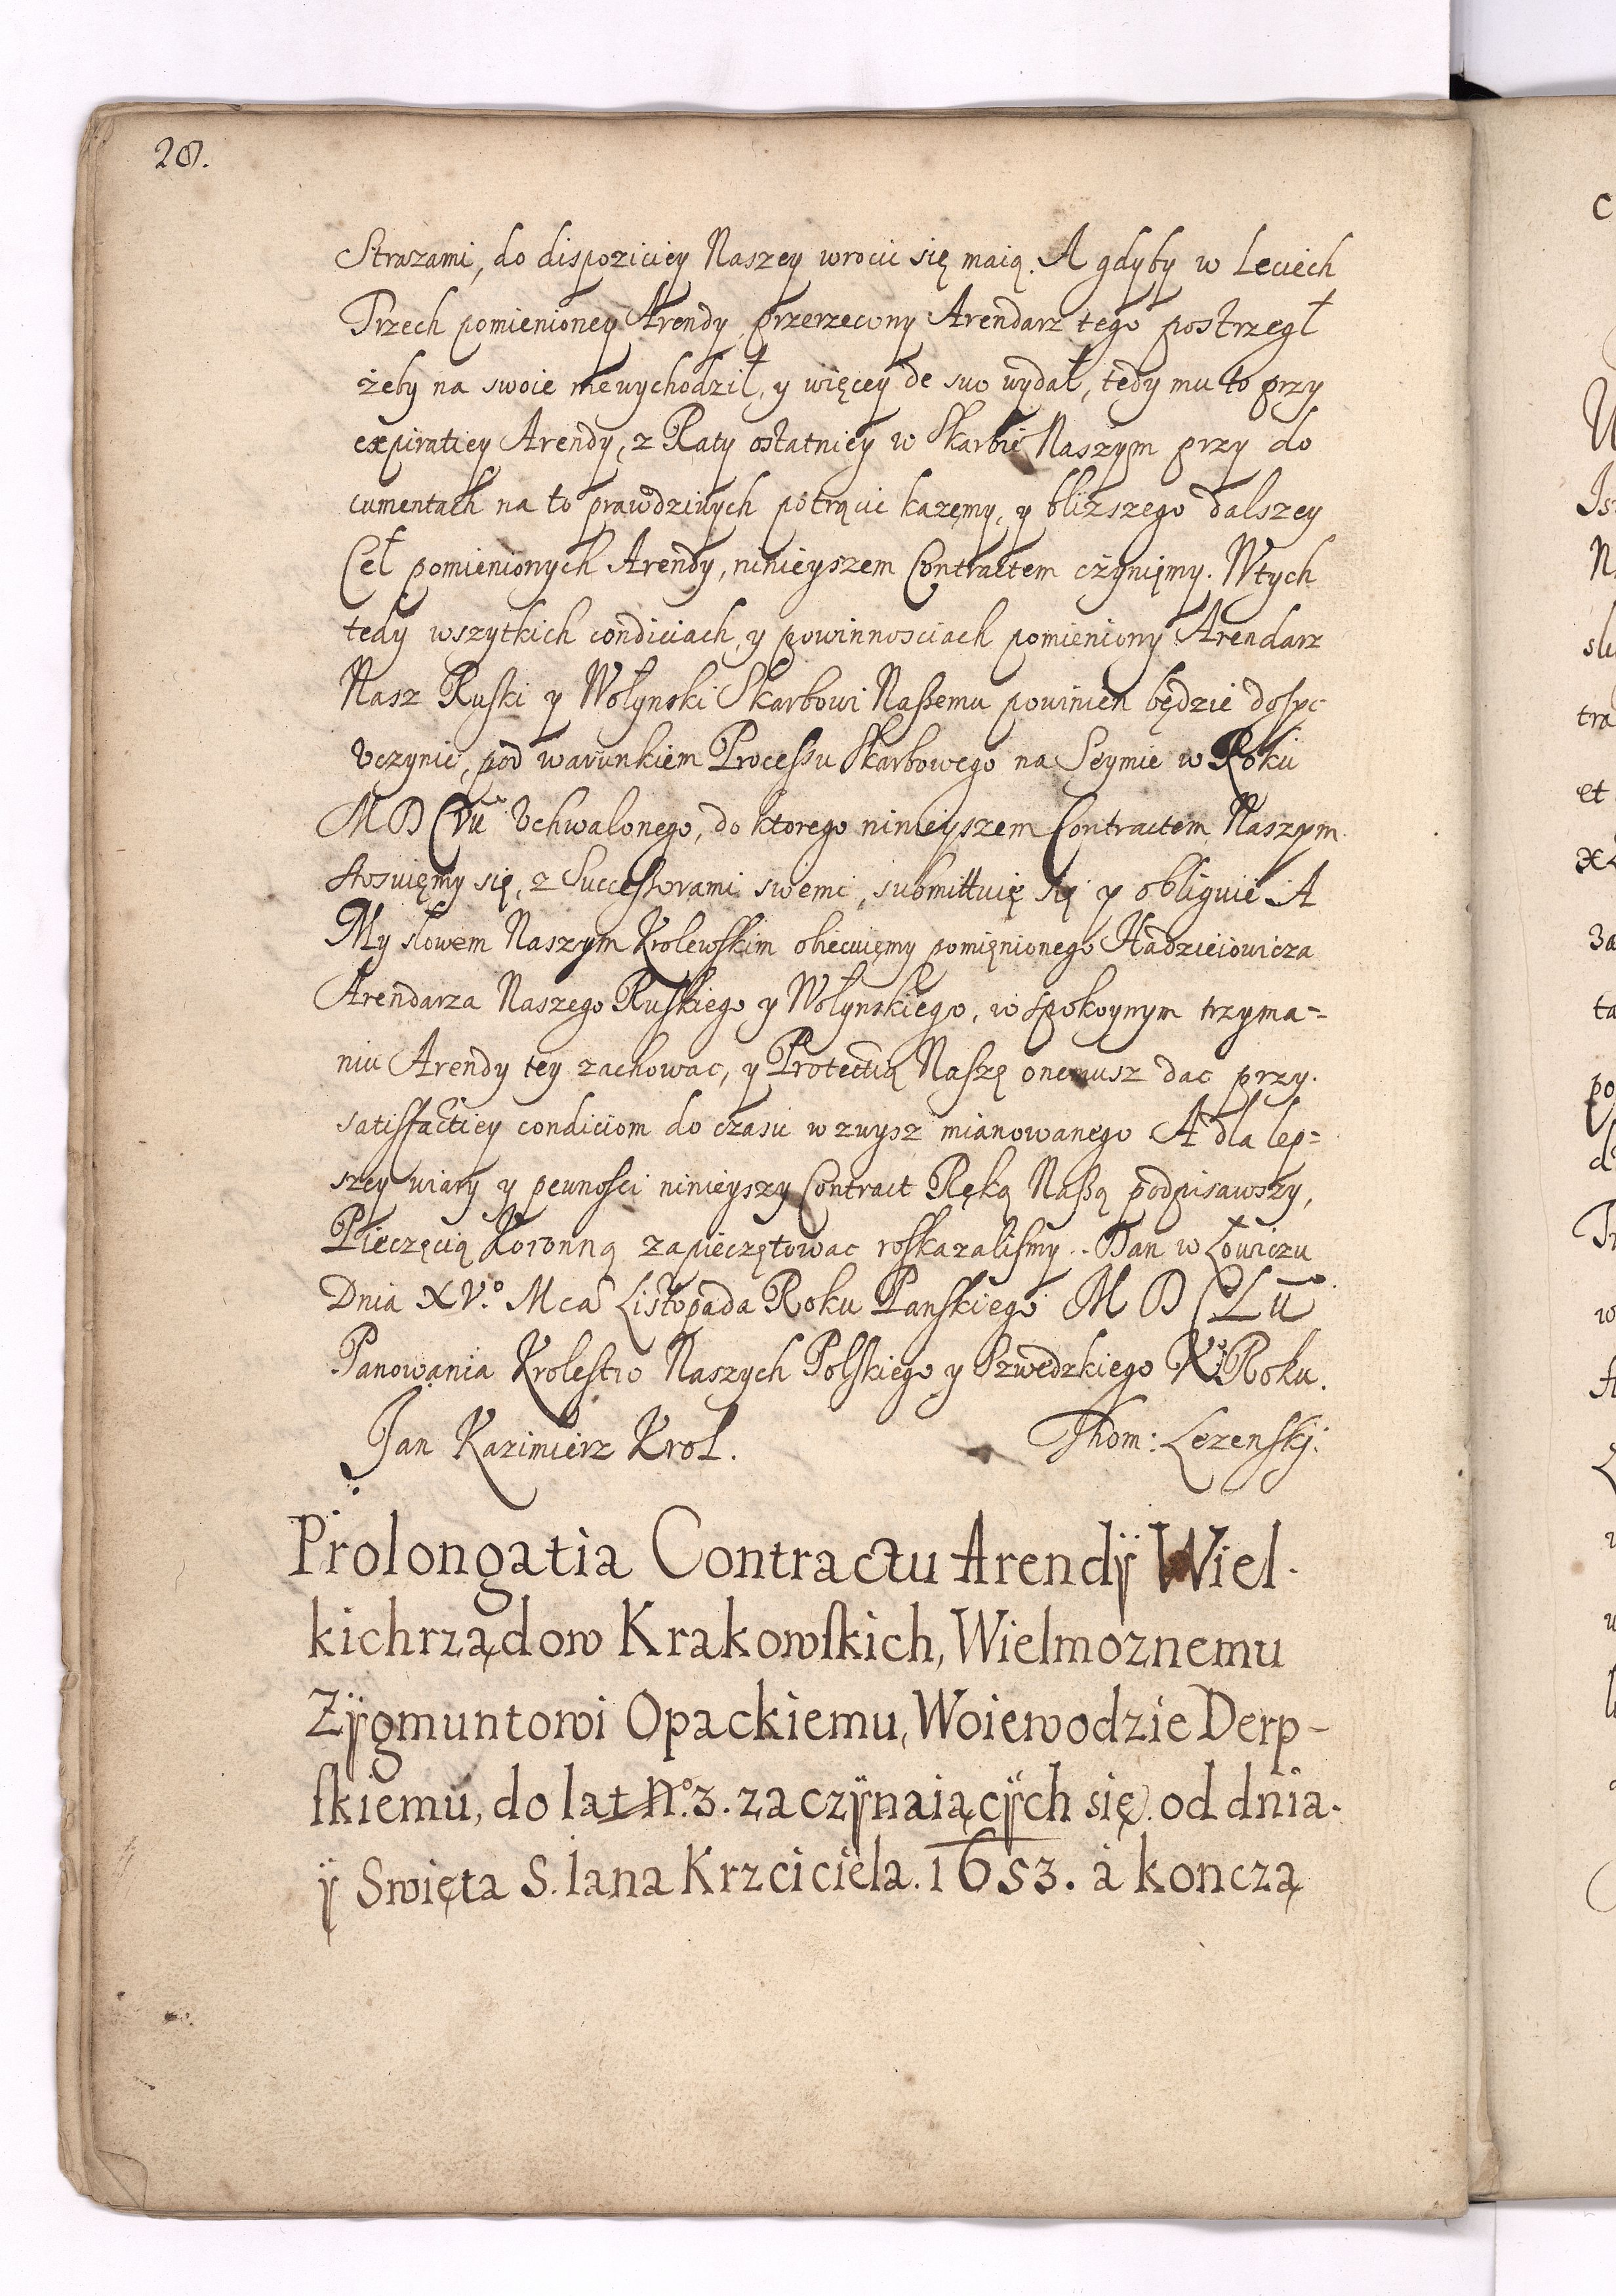 28.
Strazami, do dispoziciey Naszey wrocic się maią. A gdyby w Leciech
Trzech pomienioney Arendy, przerzeczony Arendarz tego postrzegł
żeby na swoie niewychodził, y więcey de suo wydał, tedy mu to przy
expiratiey Arendy, z Raty ostatniey w Skarbie Naszym przy do
cumentach na to prawdziwych potrącic każemy, y bliższego dalszey
Ceł pomienionych Arendy, ninieyszem Contractem czyniemy. Wtych
tedy wszytkich condiciach, y powinnosciach pomieniony Arendarz
Nasz Ruski y Wołynski Skarbowi Naszemu powinien będzie dosyc
Vczynic, pod warunkiem Processu Skarbowego na Seymie w Roku
Vchwalonego, do ktorego ninieyszem Contractem Naszym
stosuięmy się, z Successorami swemi, submittuię się y obliguie A
My słowem Naszym Krolewskim obiecuięmy pomięnionego Hadzieiowicza
Arendarza Naszego Ruskiego y Wołynskiego, w spokoynym trzyma=
niu Arendy tey zachowac, y Protectią Naszę onemusz dac przy
satisfactiey condiciom do czasu w zwysz mianowanego A dla lep=
szey wiary y pewnosci ninieyszy Contract Ręką Naszą podpisawszy,
Pieczęcią Koronną zapieczętowac roskazalismy. Dan w Łowiczu
Dnia XV.º Mca Listopada Roku Panskiego M D C L ii
Panowania Krolestw Naszych Polskiego y Szwedzkiego Roku.
Jan Kazimierz Krol. Thom: Lezenskj:
Prolongatia Contractu Arendÿ Wiel.
kichrządow Krakowskich, Wielmoznemu
Zÿgmuntowi Opackiemu, Woiewodzie Derp-
skiemu, do lat Nº.3. zaczÿnaiącÿch się. od dnia.
ÿ Swięta S. Iana Krzciciela. 1653. a konczą